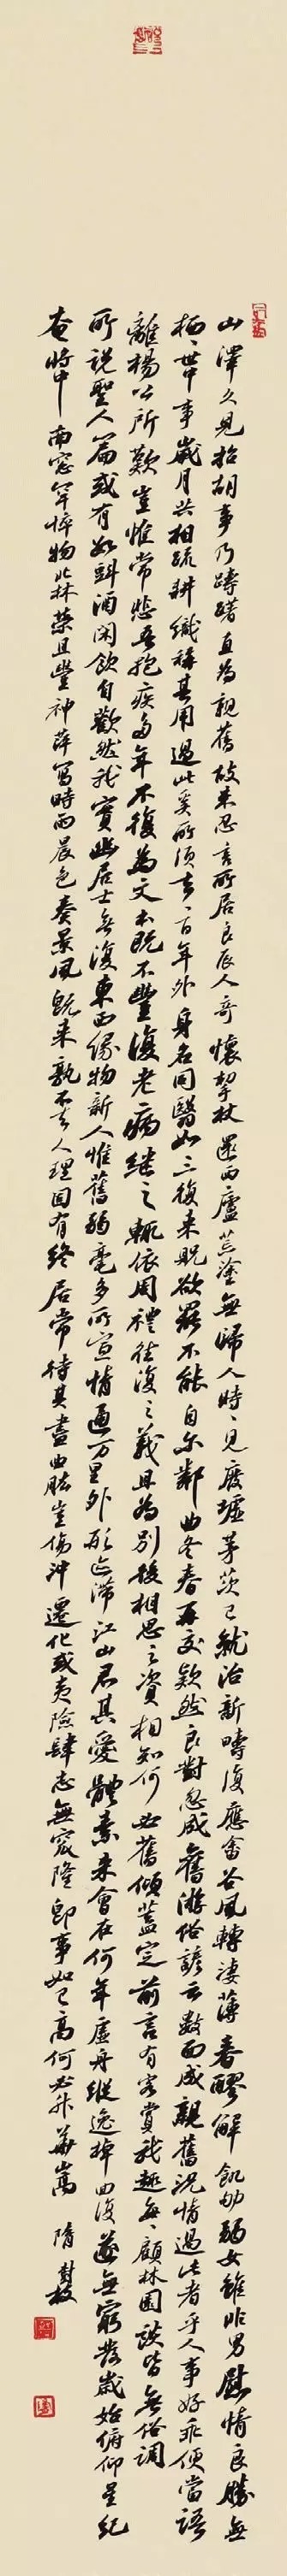 山澤久見招胡事乃躊躇直為親舊故未忍言索居良辰入奇懷挈杖還西廬荒塗無歸人時、見廢墟茅茨已就治新疇復應畬谷風轉淒薄春醪解飢劬弱女雖非男慰情良勝無
栖、世中事歲月共相疏耕織稱其用過此奚所須去、百年外身名同翳如三復來貺欲罷不能自爾鄰曲冬春再交欵然良對忽成舊游俗諺云數面成親舊況情過此者乎人事好乖便當語
離楊公所歎豈惟常悲吾抱疾多年不復為文本既不豐復老病繼之輒依周禮往復之義且為別後相思之資相知何必舊傾蓋定前言有客賞我趣每、顧林園談皆無俗調
所說聖人篇或有數斟酒閑飲自歡然我實幽居士無復東西緣物新人惟舊弱毫多所宣情通万里外形迹滯江山君其愛體素來會在何年虛舟縱逸棹回復遂無窮發歲始俯仰星紀
奄將中南窗罕悴物北林榮且豐神萍寫時雨晨色奏景風既來孰不去人理固有終居常待其盡曲肱豈傷沖遷化或夷險肆志無窊隆即事如已高何必升華嵩 隋